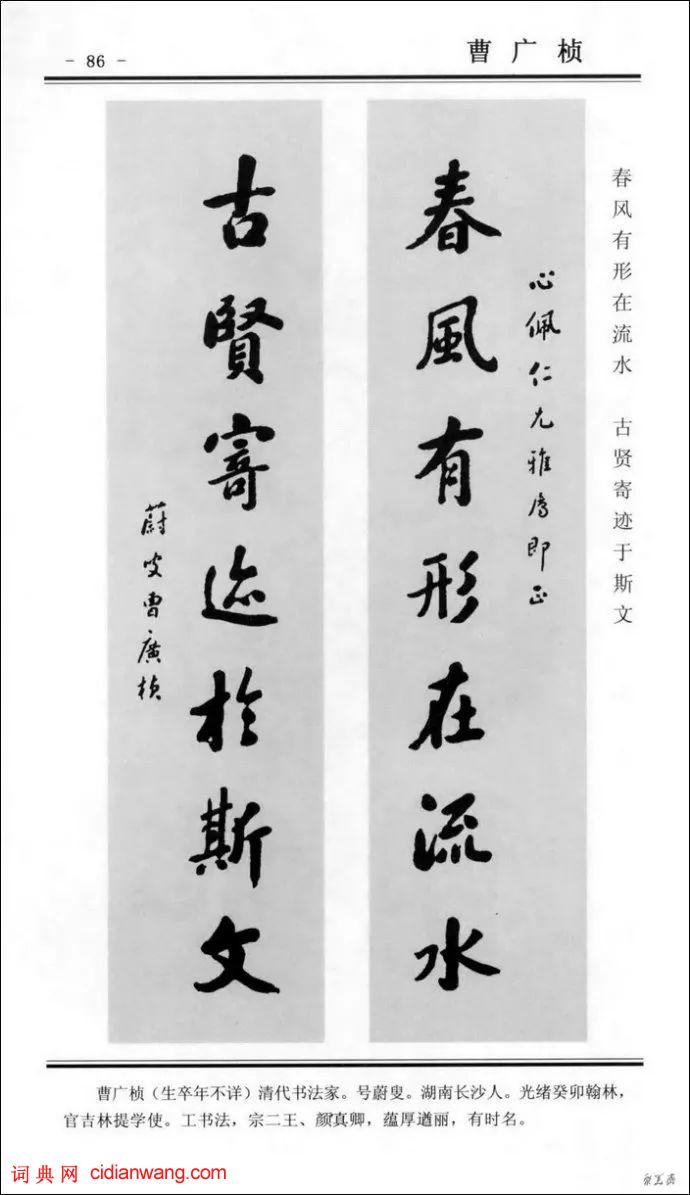 - 86 -
曹广桢
春风有形在流水 古贤寄迹于斯文
心佩仁尤雅属即正
春風有形在流水
古賢寄迹於斯文
蔚叟曹廣楨
曹广桢（生卒年不详）清代书法家。号蔚叟。湖南长沙人。光绪癸卯翰林，
官吉林提学使。工书法，宗二王、颜真卿，蕴厚遒丽，有时名。
词典网 cidianwang.com